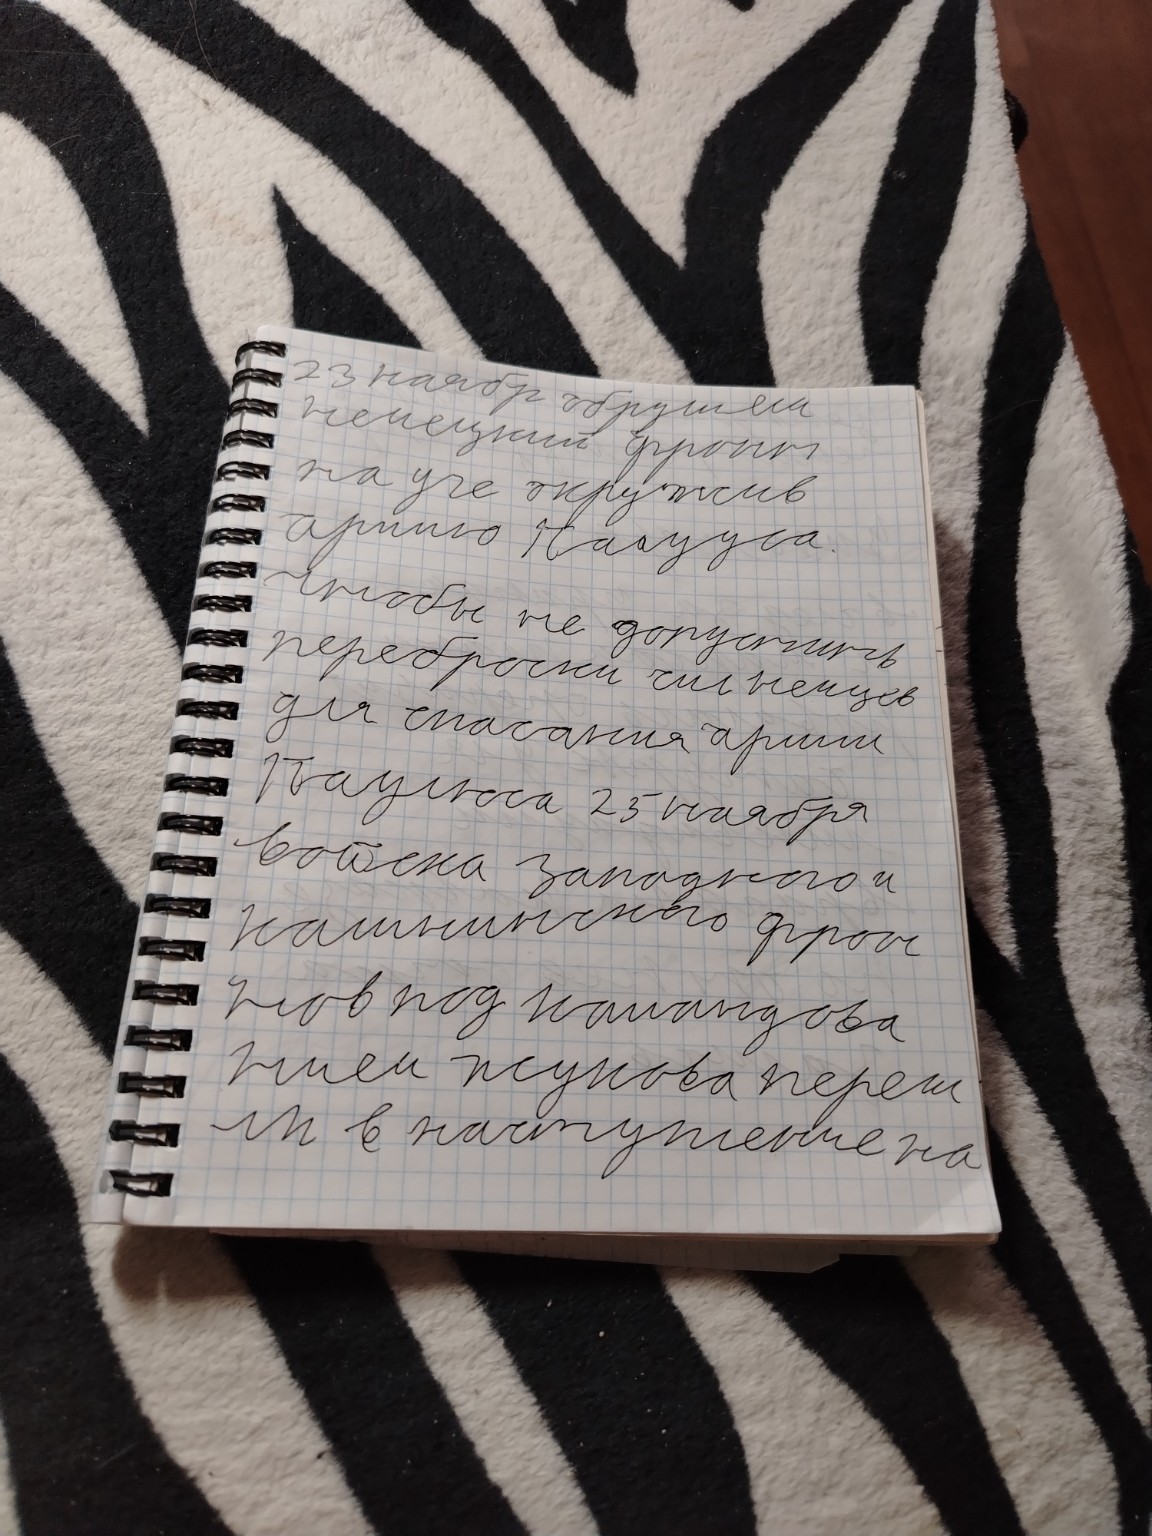 23 ноябр обрушен
немецкий фронт
на уге окружив
армию Паулуса.
Чтобы не допустить
переброски сил немцев
для спасания армии
Паулюса 25 ноября
войска западного и
калининского фрон
тов под командова
нием жукова переш
ли в наступление на